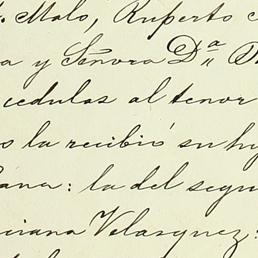 Malo, Ruperto
a y Señora Dª
cedulas al tenor
o la recibió su hij
ana: la del segun
ciana Velasquez: